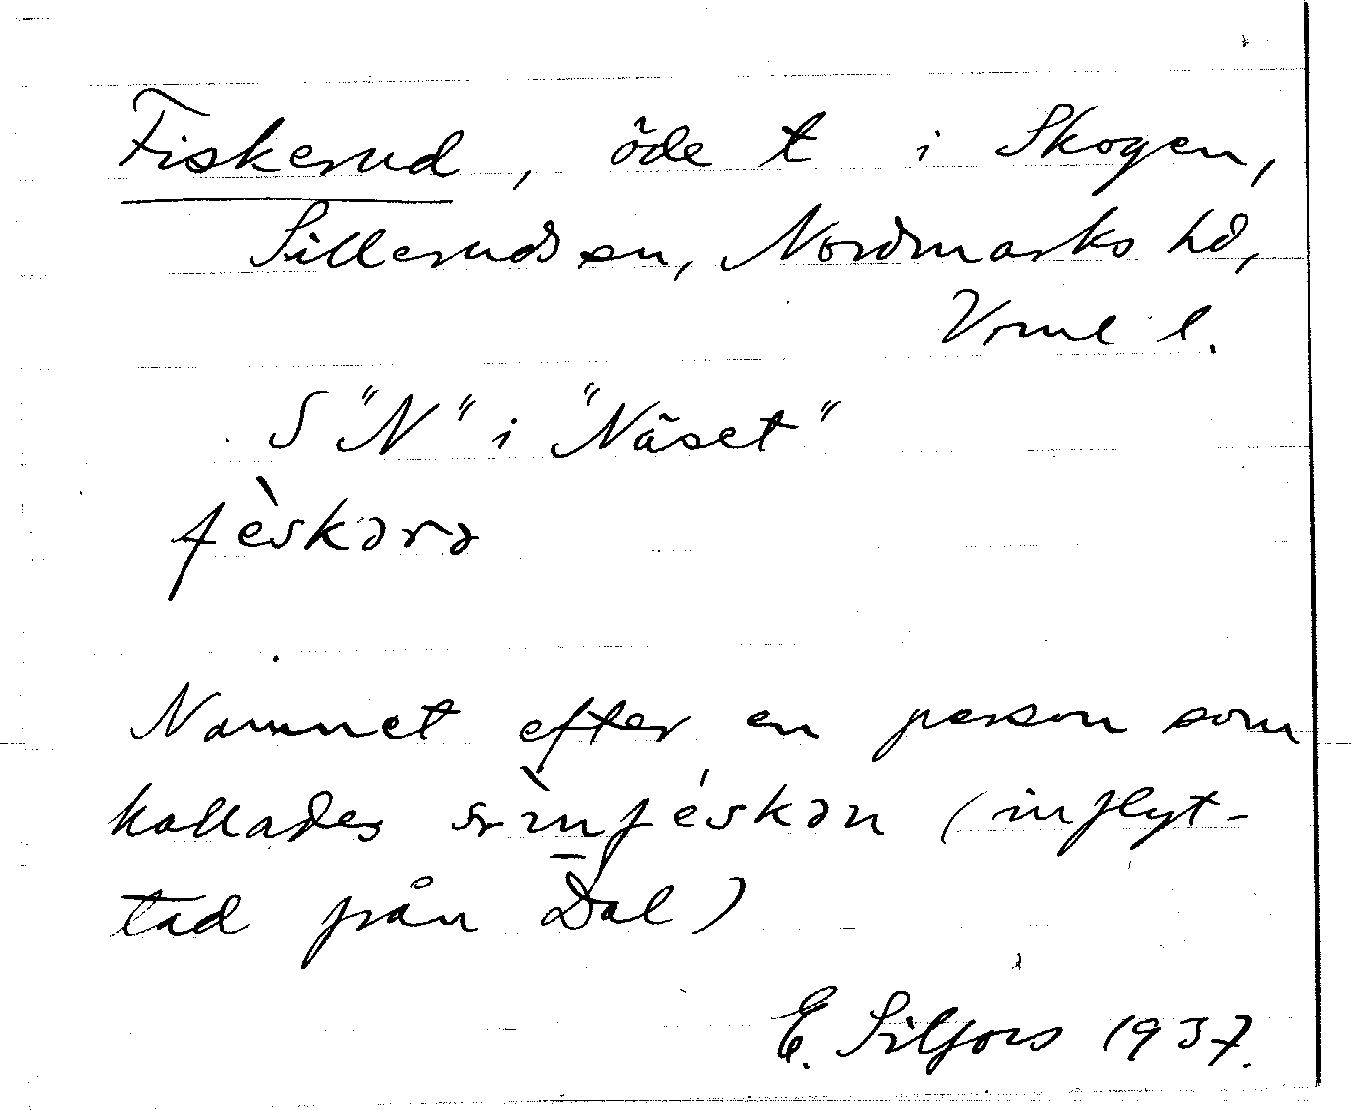 Fiskerud, öde t i Skogen,
Silleruds sn, Nordmarks hd,
Vrml l.
S "N" i "Näset"
fèskərə
Namnet efter en person som
kallades féskən (inflyt-
tad från Dal)
E. Siljors 1937.